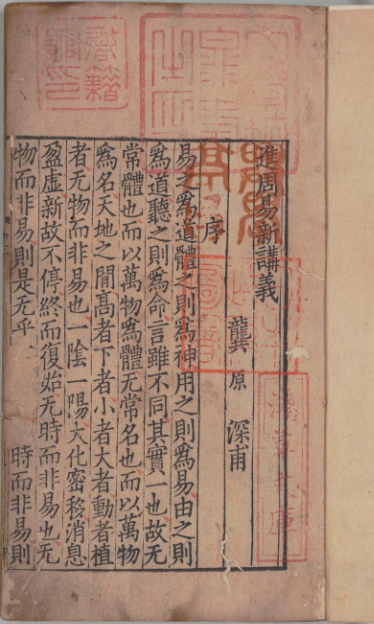 進周易新講義
龔原 深甫
序
易之爲道體之則爲神用之則爲易由之則
爲道聽之則爲命言雖不同其實一也故无
常體也而以萬物爲體无常名也而以萬物
爲名天地之間高者下者小者大者動者植
者无物而非易也一陰一陽大化密移消息
盈虛新故不停終而復始无時而非易也无
物而非易則是无乎 時而非易則